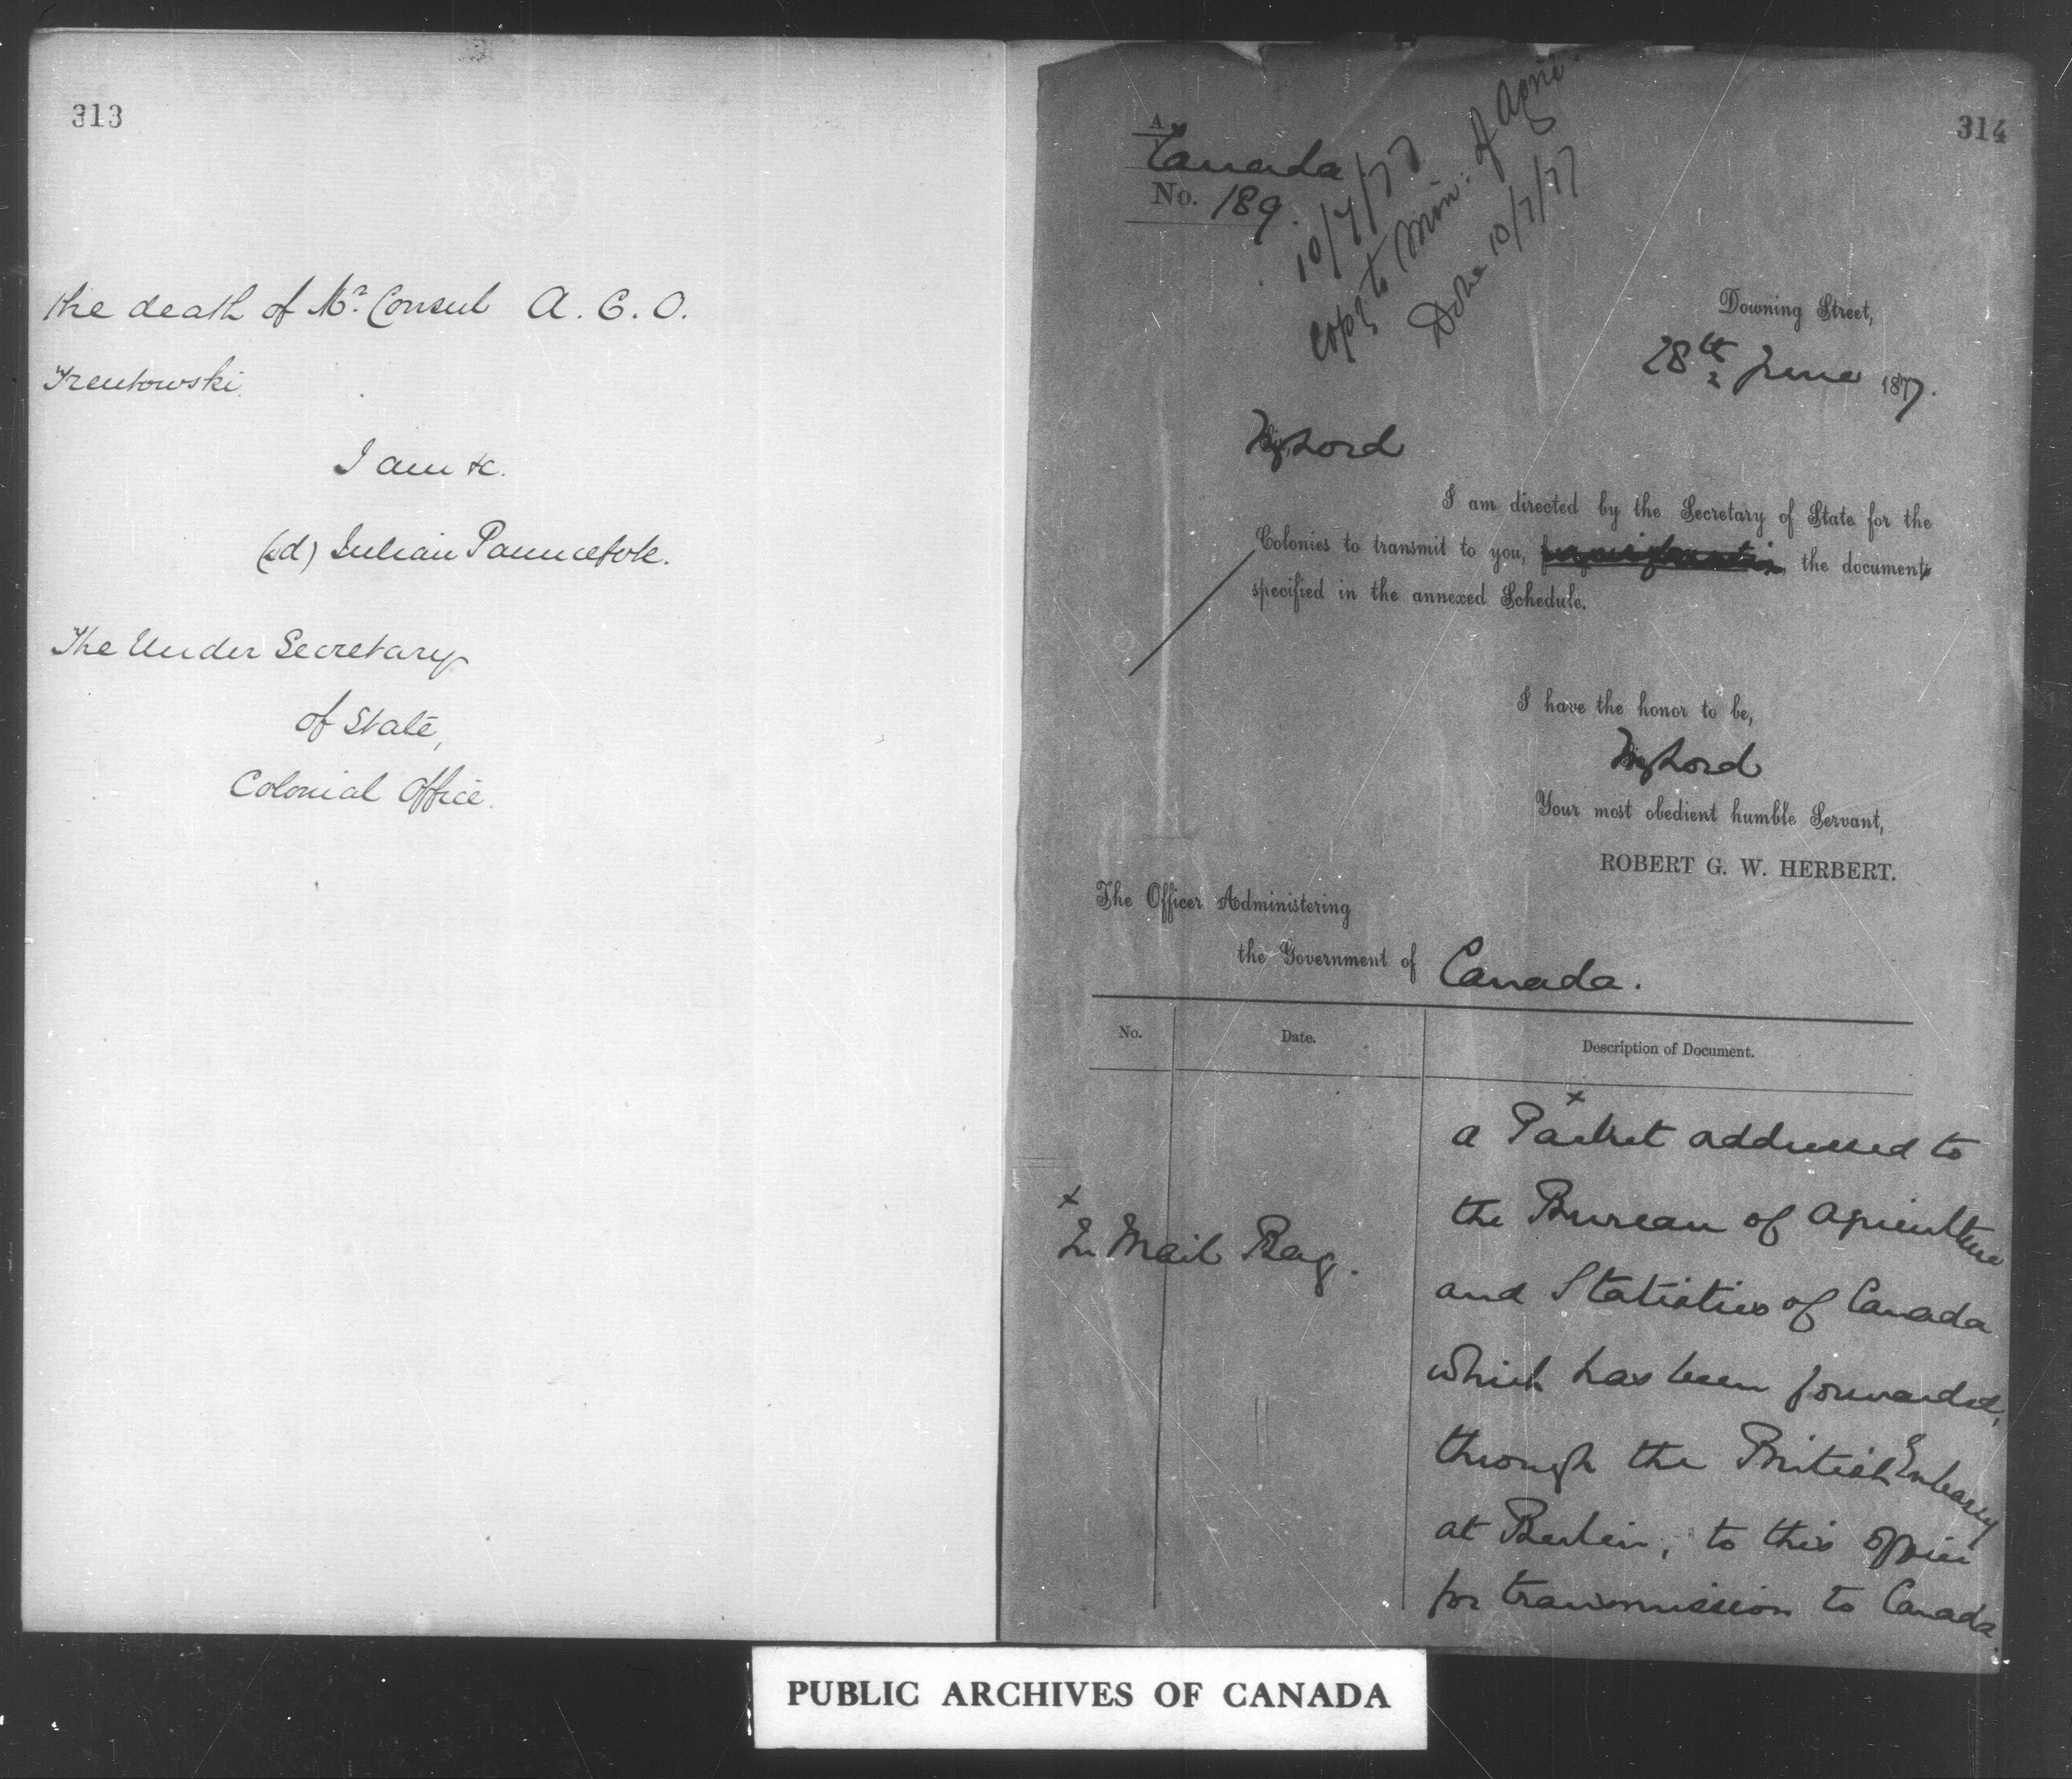 313
the death of Mr. Consul A. C. O.
Trentowski.
I am &c.
(sd) Julian Pauncefote.
The Under Secretary
of State,
Colonial Office.
314
A
Canada
No. 189.
10/7/77
Copy to Min: of Agri:
Done 10/7/77
Downing Street,
28th June 1877.
My Lord
I am directed by the Secretary of State for the
Colonies to transmit to you, the document
specified in the annexed Schedule.
I have the honor to be,
My Lord
Your most obedient humble Servant,
ROBERT G. W. HERBERT.
The Officer Administering
the Government of Canada.
No. Date. Description of Document.
x
a Packet addressed to
the Bureau of Agriculture
x
In Mail Bag.
and Statistics of Canada
which has been forwarded,
through the British Embassy
at Berlin, to this Office
for transmission to Canada.
PUBLIC ARCHIVES OF CANADA